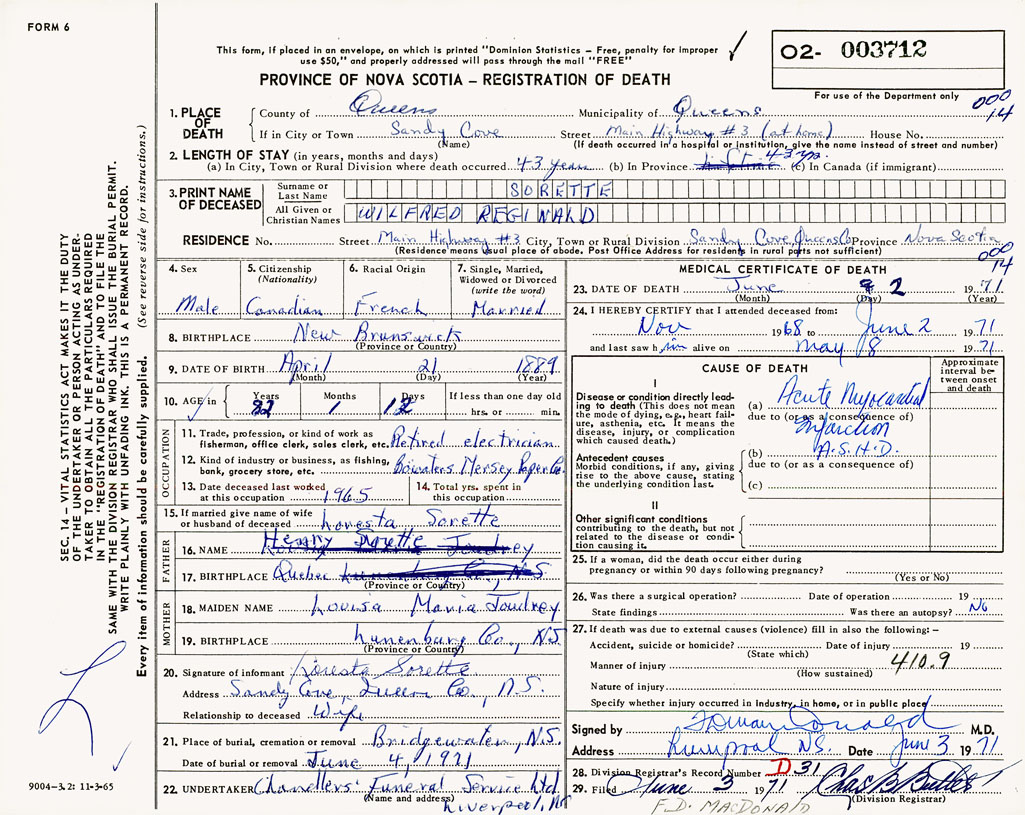 FORM 6
This form, if placed in an envelope, on which is printed "Dominion Statistics – Free, penalty for improper
use $50," and properly addressed will pass through the mail "FREE"
PROVINCE OF NOVA SCOTIA – REGISTRATION OF DEATH
O2- 003712
For use of the Department only
000
14
1. PLACE OF DEATH
County of Queens Municipality of Queens
If in City or Town Sandy Cove Street Main Highway #3 (at home) House No.
(Name) (If death occurred in a hospital or institution, give the name instead of street and number)
2. LENGTH OF STAY (in years, months and days)
(a) In City, Town or Rural Division where death occurred 43 years (b) In Province 43 yrs. (c) In Canada (if immigrant)
3. PRINT NAME OF DECEASED
Surname or Last Name SORETTE
All Given or Christian Names WILFRED REGINALD
RESIDENCE No. Street Main Highway #3 City, Town or Rural Division Sandy Cove, Queens Co Province Nova Scotia
(Residence means usual place of abode. Post Office Address for residents in rural parts not sufficient)
000
14
4. Sex Male
5. Citizenship (Nationality) Canadian
6. Racial Origin French
7. Single, Married, Widowed or Divorced (write the word) Married
8. BIRTHPLACE New Brunswick
(Province or Country)
9. DATE OF BIRTH April 21 1889
(Month) (Day) (Year)
10. AGE in Years 82 Months 1 Days 12 If less than one day old
hrs. or min.
OCCUPATION
11. Trade, profession, or kind of work as fisherman, office clerk, sales clerk, etc. Retired electrician
12. Kind of industry or business, as fishing, bank, grocery store, etc. Bowaters Mersey Paper Co.
13. Date deceased last worked at this occupation 1965
14. Total yrs. spent in this occupation
15. If married give name of wife or husband of deceased Loresta Sorette
FATHER
16. NAME Henry Sorette
17. BIRTHPLACE Quebec
(Province or Country)
MOTHER
18. MAIDEN NAME Louisa Maria Joudrey
19. BIRTHPLACE Lunenburg Co., N.S
(Province or Country)
20. Signature of informant Loresta Sorette
Address Sandy Cove, Queen Co., N.S.
Relationship to deceased Wife
21. Place of burial, cremation or removal Bridgewater, N.S.
Date of burial or removal June 4, 1971
22. UNDERTAKER Chandlers' Funeral Service Ltd.
(Name and address)
Liverpool, NS
MEDICAL CERTIFICATE OF DEATH
23. DATE OF DEATH June 2 1971
(Month) (Day) (Year)
24. I HEREBY CERTIFY that I attended deceased from:
Nov 1968 to June 2 1971
and last saw him alive on May 8 1971
CAUSE OF DEATH
Approximate interval between onset and death
I
Disease or condition directly leading to death (This does not mean the mode of dying, e.g., heart failure, asthenia, etc. It means the disease, injury, or complication which caused death.)
(a) Acute Myocardial
due to (or as a consequence of)
Infarction
Antecedent causes
Morbid conditions, if any, giving rise to the above cause, stating the underlying condition last.
(b) A.S.H.D.
due to (or as a consequence of)
(c)
II
Other significant conditions
contributing to the death, but not related to the disease or condition causing it.
25. If a woman, did the death occur either during
pregnancy or within 90 days following pregnancy?
(Yes or No)
26. Was there a surgical operation? Date of operation 19
State findings Was there an autopsy? No
27. If death was due to external causes (violence) fill in also the following: –
Accident, suicide or homicide? Date of injury 19
(State which)
Manner of injury 410.9
(How sustained)
Nature of injury
Specify whether injury occurred in industry, in home, or in public place
Signed by M.D.
Address Liverpool N.S. Date June 3 1971
28. Division Registrar's Record Number D 31
29. Filed June 3 1971 Chas B Butler
(Division Registrar)
F.D. MACDONALD
SEC. 14 – VITAL STATISTICS ACT MAKES IT THE DUTY
OF THE UNDERTAKER OR PERSON ACTING AS UNDER-
TAKER TO OBTAIN ALL THE PARTICULARS REQUIRED
IN THE "REGISTRATION OF DEATH" AND TO FILE THE
SAME WITH THE DIVISION REGISTRAR WHO SHALL ISSUE THE BURIAL PERMIT.
WRITE PLAINLY WITH UNFADING INK. THIS IS A PERMANENT RECORD.
Every item of information should be carefully supplied. (See reverse side for instructions.)
9004-3.2: 11-3-65